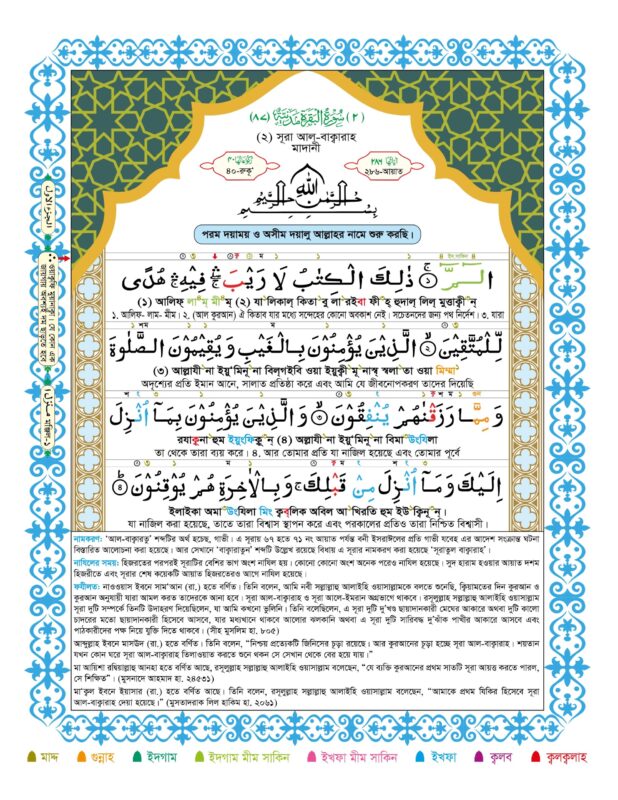 (٢) سُوْرَةُ الْبَقَرَةِ مَدَنِيَّةٌ (٨٧)
(২) সূরা আল্-বাক্বারাহ
মাদানী
৪০-রুকূ'
২৮৬-আয়াত
بِسْمِ اللّٰهِ الرَّحْمٰنِ الرَّحِيْمِ
পরম দয়াময় ও অসীম দয়ালু আল্লাহর নামে শুরু করছি।
الٓـمّٓ ۚ ذٰلِكَ الْكِتٰبُ لَا رَيْبَ ۛ فِيْهِ ۛ هُدًى
(১) আলিফ্ লা~ম্ মী~ম্ (২) যা লিকাল্ কিতা বু লা রাইবা ফী হ্ হুদাল্ লিল্ মুত্তাক্বী ন্
১. আলিফ- লাম- মীম। ২. (আল কুরআন) ঐ কিতাব যার মধ্যে সন্দেহের কোনো অবকাশ নেই। সচেতনদের জন্য পথ নির্দেশ। ৩. যারা
لِّلْمُتَّقِيْنَ الَّذِيْنَ يُؤْمِنُوْنَ بِالْغَيْبِ وَيُقِيْمُوْنَ الصَّلٰوةَ
(৩) আল্লাযী না ইয়ু'মিনূ না বিল্গাইবি ওয়া ইয়ুক্বী মূ নাস্ব স্বলা তা ওয়া মিম্মা
অদৃশ্যের প্রতি ইমান আনে, সালাত প্রতিষ্ঠা করে এবং আমি যে জীবনোপকরণ তাদের দিয়েছি
وَمِمَّا رَزَقْنٰهُمْ يُنْفِقُوْنَ وَالَّذِيْنَ يُؤْمِنُوْنَ بِمَآ اُنْزِلَ
রযাকুনা হুম ইয়ুংফিকূ ন্ (৪) অল্লাযী না ইয়ু'মিনূ না বিমা~ উংযিলা
তা থেকে তারা ব্যয় করে। ৪. আর তোমার প্রতি যা নাজিল হয়েছে এবং তোমার পূর্বে
اِلَيْكَ وَمَآ اُنْزِلَ مِنْ قَبْلِكَ ۚ وَبِالْاٰخِرَةِ هُمْ يُوْقِنُوْنَ ٤
ইলাইকা অমা~ উংযিলা মিং ক্বব্লিক অবিল আ খিরতি হুম ইউ'ক্বিনূ ন্।
যা নাজিল করা হয়েছে, তাতে তারা বিশ্বাস স্থাপন করে এবং পরকালের প্রতিও তারা নিশ্চিত বিশ্বাসী।
নামকরণ: 'আল-বাক্বারাতু' শব্দটির অর্থ হচ্ছে, গাভী। এ সূরায় ৬৭ হতে ৭১ নং আয়াত পর্যন্ত বনী ইসরাঈলের প্রতি গাভী যবেহ এর আদেশ সংক্রান্ত ঘটনা
বিস্তারিত আলোচনা করা হয়েছে। আর সেখানে 'বাক্বারাতুন' শব্দটি উল্লেখ রয়েছে বিধায় এ সূরার নামকরণ করা হয়েছে 'সূরাতুল বাক্বারাহ'।
নাযিলের সময়: হিজরতের পরপরই সূরাটির বেশির ভাগ অংশ নাযিল হয়। কোনো কোনো অংশ অনেক পরেও নাযিল হয়েছে। সুদ হারাম হওয়ার আয়াত দশম
হিজরীতে এবং সূরার শেষ কয়েকটি আয়াত হিজরতেরও আগে নাযিল হয়েছে।
ফযীলত: নাওওয়াস ইবনে সাম'আন (রা.) হতে বর্ণিত। তিনি বলেন, আমি নবী সল্লাল্লাহু আলাইহি ওয়াসাল্লামকে বলতে শুনেছি, ক্বিয়ামতের দিন কুরআন ও
কুরআন অনুযায়ী যারা আমল করত তাদেরকে আনা হবে। সূরা আল-বাক্বারাহ ও সূরা আলে-ইমরান অগ্রভাগে থাকবে। রসূলুল্লাহ সল্লাল্লাহু আলাইহি ওয়াসাল্লাম
সূরা দুটি সম্পর্কে তিনটি উদাহরণ দিয়েছিলেন, যা আমি কখনো ভুলিনি। তিনি বলেছিলেন, এ সূরা দুটি দু'খণ্ড ছায়াদানকারী মেঘের আকারে অথবা দুটি কালো
চাদরের মতো ছায়াদানকারী হিসেবে আসবে, যার মধ্যখানে থাকবে আলোর ঝলকানি অথবা এ সূরা দুটি সারিবদ্ধ দু'ঝাঁক পাখীর আকারে আসবে এবং
পাঠকারীদের পক্ষ নিয়ে যুক্তি দিতে থাকবে। (সহীহ মুসলিম হা. ৮০৫)
আব্দুল্লাহ ইবনে মাসউদ (রা.) হতে বর্ণিত। তিনি বলেন, "নিশ্চয় প্রত্যেকটি জিনিসের চূড়া রয়েছে। আর কুরআনের চূড়া হচ্ছে সূরা আল-বাক্বারাহ। শয়তান
যখন কোন ঘরে সূরা আল-বাক্বারাহ তিলাওয়াত করতে শুনে তখন সে সেখান থেকে বের হয়ে যায়।"
মা আয়িশা রদ্বিয়াল্লাহু আনহা হতে বর্ণিত আছে, রসূলুল্লাহ সল্লাল্লাহু আলাইহি ওয়াসাল্লাম বলেছেন, "যে ব্যক্তি কুরআনের প্রথম সাতটি সূরা আয়ত্ত করতে পারল,
সে শিক্ষিত"। (মুসনাদে আহমাদ হা. ২৪৫৩১)
মা'ক্বল ইবনে ইয়াসার (রা.) হতে বর্ণিত আছে। তিনি বলেন, রসূলুল্লাহ সল্লাল্লাহু আলাইহি ওয়াসাল্লাম বলেছেন, "আমাকে প্রথম যিকির হিসেবে সূরা
আল-বাক্বারাহ দেয়া হয়েছে।" (মুসতাদরাক লিল হাকিম হা. ২০৬১)
মাদ্দ গুন্নাহ ইদগাম ইদগাম মীম সাকিন ইখফা মীম সাকিন ইখফা ক্বলব ক্বলক্বলাহ